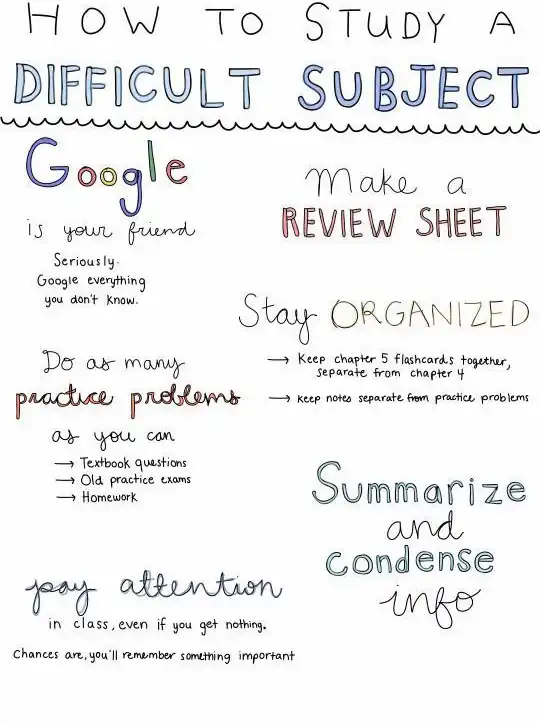 HOW TO STUDY A
DIFFICULT SUBJECT
Google
is your friend
Seriously.
Google everything
you don't know.
Do as many
practice problems
as you can
→ Textbook questions
→ Old practice exams
→ Homework
pay attention
in class, even if you get nothing.
Chances are, you'll remember something important
Make a
REVIEW SHEET
Stay ORGANIZED
→ Keep chapter 5 flashcards together,
separate from chapter 4
→ keep notes separate from practice problems
Summarize
and
condense
info